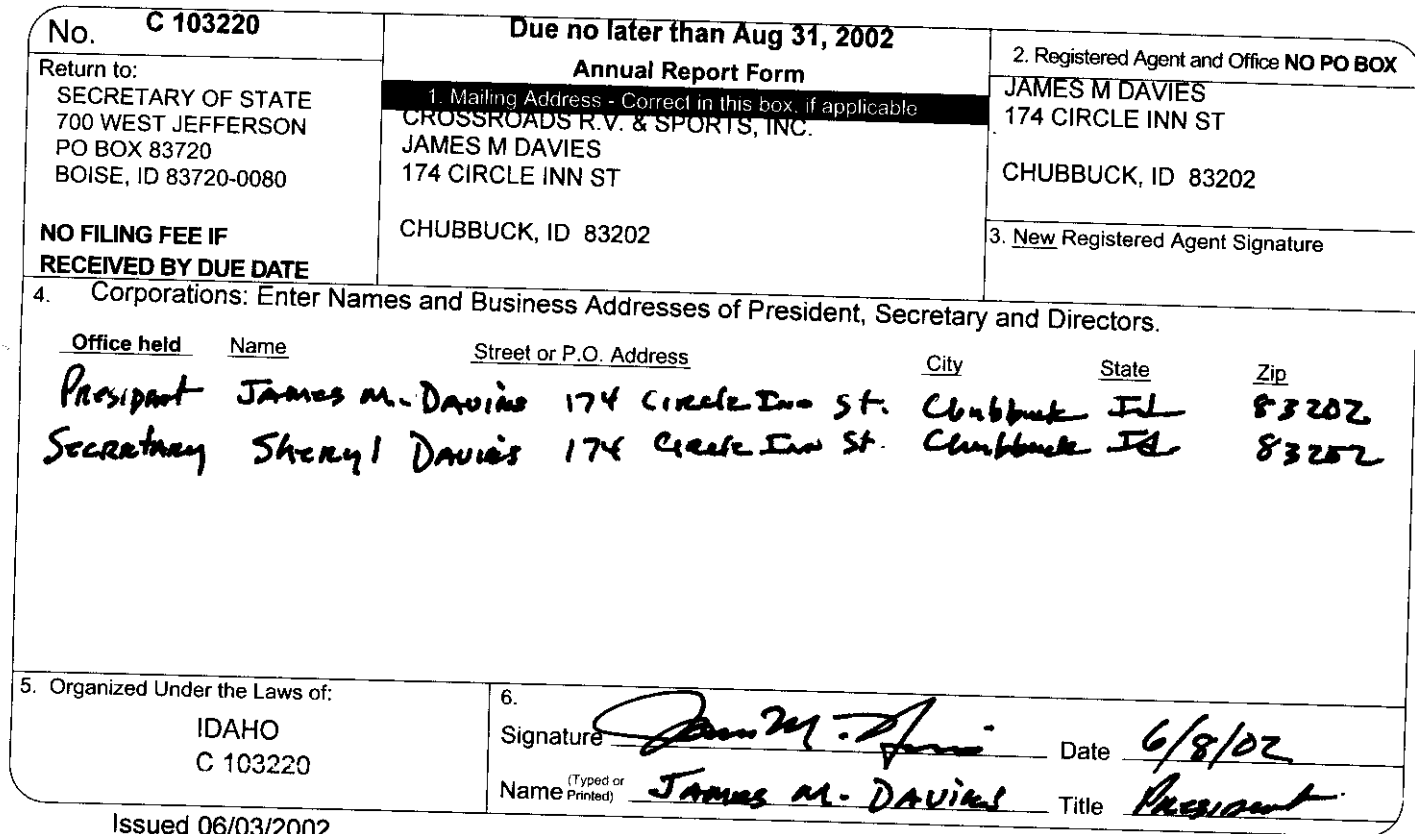 No. C 103220
Return to:
SECRETARY OF STATE
700 WEST JEFFERSON
PO BOX 83720
BOISE, ID 83720-0080
NO FILING FEE IF
RECEIVED BY DUE DATE
Due no later than Aug 31, 2002
Annual Report Form
1. Mailing Address - Correct in this box, if applicable
CROSSROADS R.V. & SPORTS, INC.
JAMES M DAVIES
174 CIRCLE INN ST
CHUBBUCK, ID 83202
2. Registered Agent and Office NO PO BOX
JAMES M DAVIES
174 CIRCLE INN ST
CHUBBUCK, ID 83202
3. New Registered Agent Signature
4. Corporations: Enter Names and Business Addresses of President, Secretary and Directors.
Office held Name Street or P.O. Address City State Zip
President James M. Davies 174 Circle Inn St. Chubbuck Id 83202
Secretary Sheryl Davies 174 Circle Inn St. Chubbuck Id 83202
5. Organized Under the Laws of:
IDAHO
C 103220
6.
Signature James M. Davies Date 6/8/02
Name (Typed or Printed) James M. Davies Title President
Issued 06/03/2002